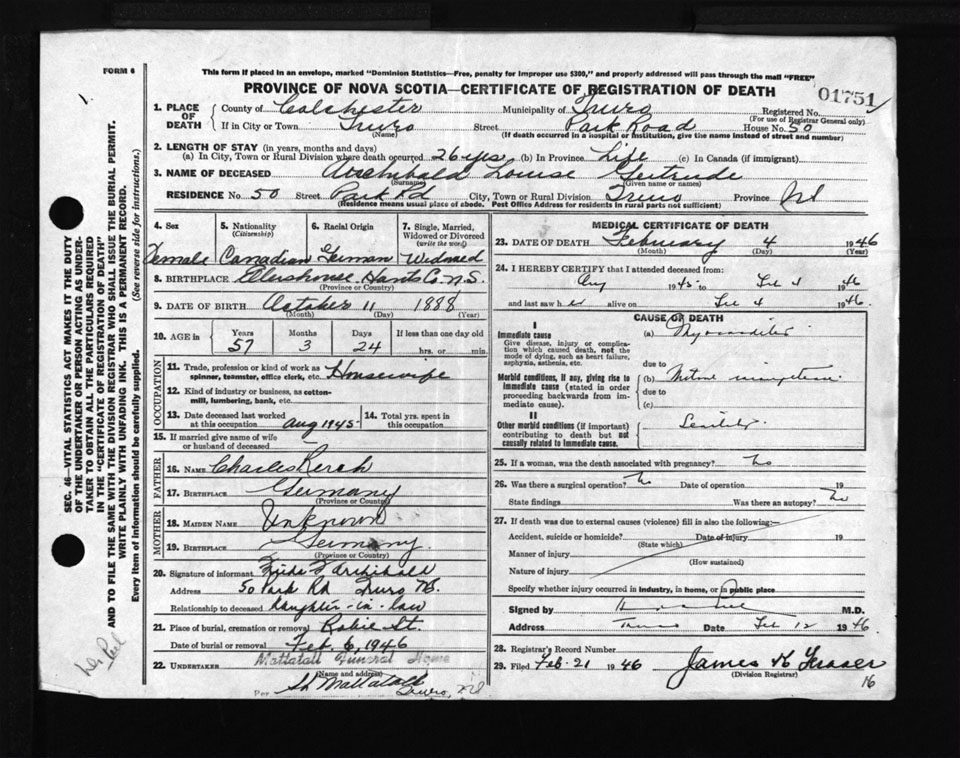 FORM 6
This form if placed in an envelope, marked "Dominion Statistics—Free, penalty for improper use $300," and properly addressed will pass through the mail "FREE"
PROVINCE OF NOVA SCOTIA—CERTIFICATE OF REGISTRATION OF DEATH
01751
1. PLACE OF DEATH County of Colchester Municipality of Truro Registered No.
(For use of Registrar General only)
If in City or Town Truro Street Park Road House No. 50
(Name) (If death occurred in a hospital or institution, give the name instead of street and number)
2. LENGTH OF STAY (in years, months and days)
(a) In City, Town or Rural Division where death occurred 26 yrs (b) In Province Life (c) In Canada (if immigrant)
3. NAME OF DECEASED Archibald Louise Gertrude
(Surname) (Given name or names)
RESIDENCE No. 50 Street Park Rd City, Town or Rural Division Truro Province NS
(Residence means usual place of abode. Post Office Address for residents in rural parts not sufficient)
4. Sex Female
5. Nationality (Citizenship) Canadian
6. Racial Origin German
7. Single, Married, Widowed or Divorced (write the word) Widowed
8. BIRTHPLACE Elershouse Hants Co. N.S.
(Province or Country)
9. DATE OF BIRTH October 11 1888
(Month) (Day) (Year)
10. AGE Years 57 Months 3 Days 24 If less than one day old
hrs. or min.
OCCUPATION
11. Trade, profession or kind of work as spinner, teamster, office clerk, etc. Housewife
12. Kind of industry or business, as cotton-mill, lumbering, bank, etc.
13. Date deceased last worked at this occupation Aug 1945
14. Total yrs. spent in this occupation
15. If married give name of wife or husband of deceased
FATHER
16. NAME Charles Kerch
17. BIRTHPLACE Germany
(Province or Country)
MOTHER
18. MAIDEN NAME Unknown
19. BIRTHPLACE Germany.
(Province or Country)
20. Signature of informant Archibald
Address 50 Park Rd Truro NS.
Relationship to deceased daughter-in-law
21. Place of burial, cremation or removal Robie St.
Date of burial or removal Feb. 6, 1946
22. UNDERTAKER Mattatall Funeral Home
(Name and address)
Per Mattatall Truro, NS
MEDICAL CERTIFICATE OF DEATH
23. DATE OF DEATH February 4 1946
(Month) (Day) (Year)
24. I HEREBY CERTIFY that I attended deceased from:
Aug 1945 to Feb 4 1946
and last saw her alive on Feb 4 1946.
CAUSE OF DEATH
I
Immediate cause (a) Myocarditis
Give disease, injury or complication which caused death, not the mode of dying, such as heart failure, asphyxia, asthenia, etc.
due to
Morbid conditions, if any, giving rise to immediate cause (stated in order proceeding backwards from immediate cause).
(b) Mitral
due to
(c)
II
Other morbid conditions (if important) contributing to death but not causally related to immediate cause.
25. If a woman, was the death associated with pregnancy? No
26. Was there a surgical operation? No Date of operation 19
State findings Was there an autopsy? No
27. If death was due to external causes (violence) fill in also the following:—
Accident, suicide or homicide? Date of injury 19
(State which)
Manner of injury
(How sustained)
Nature of injury
Specify whether injury occurred in industry, in home, or in public place
Signed by M.D.
Address Truro Date Feb 12 1946
28. Registrar's Record Number
29. Filed Feb. 21 1946 James K Fraser
(Division Registrar)
16
SEC. 46—VITAL STATISTICS ACT MAKES IT THE DUTY
OF THE UNDERTAKER OR PERSON ACTING AS UNDERTAKER TO OBTAIN ALL THE PARTICULARS REQUIRED
IN THE "CERTIFICATE OF REGISTRATION OF DEATH"
AND TO FILE THE SAME WITH THE DIVISION REGISTRAR WHO SHALL ISSUE THE BURIAL PERMIT.
WRITE PLAINLY WITH UNFADING INK. THIS IS A PERMANENT RECORD.
Every item of information should be carefully supplied. (See reverse side for instructions.)